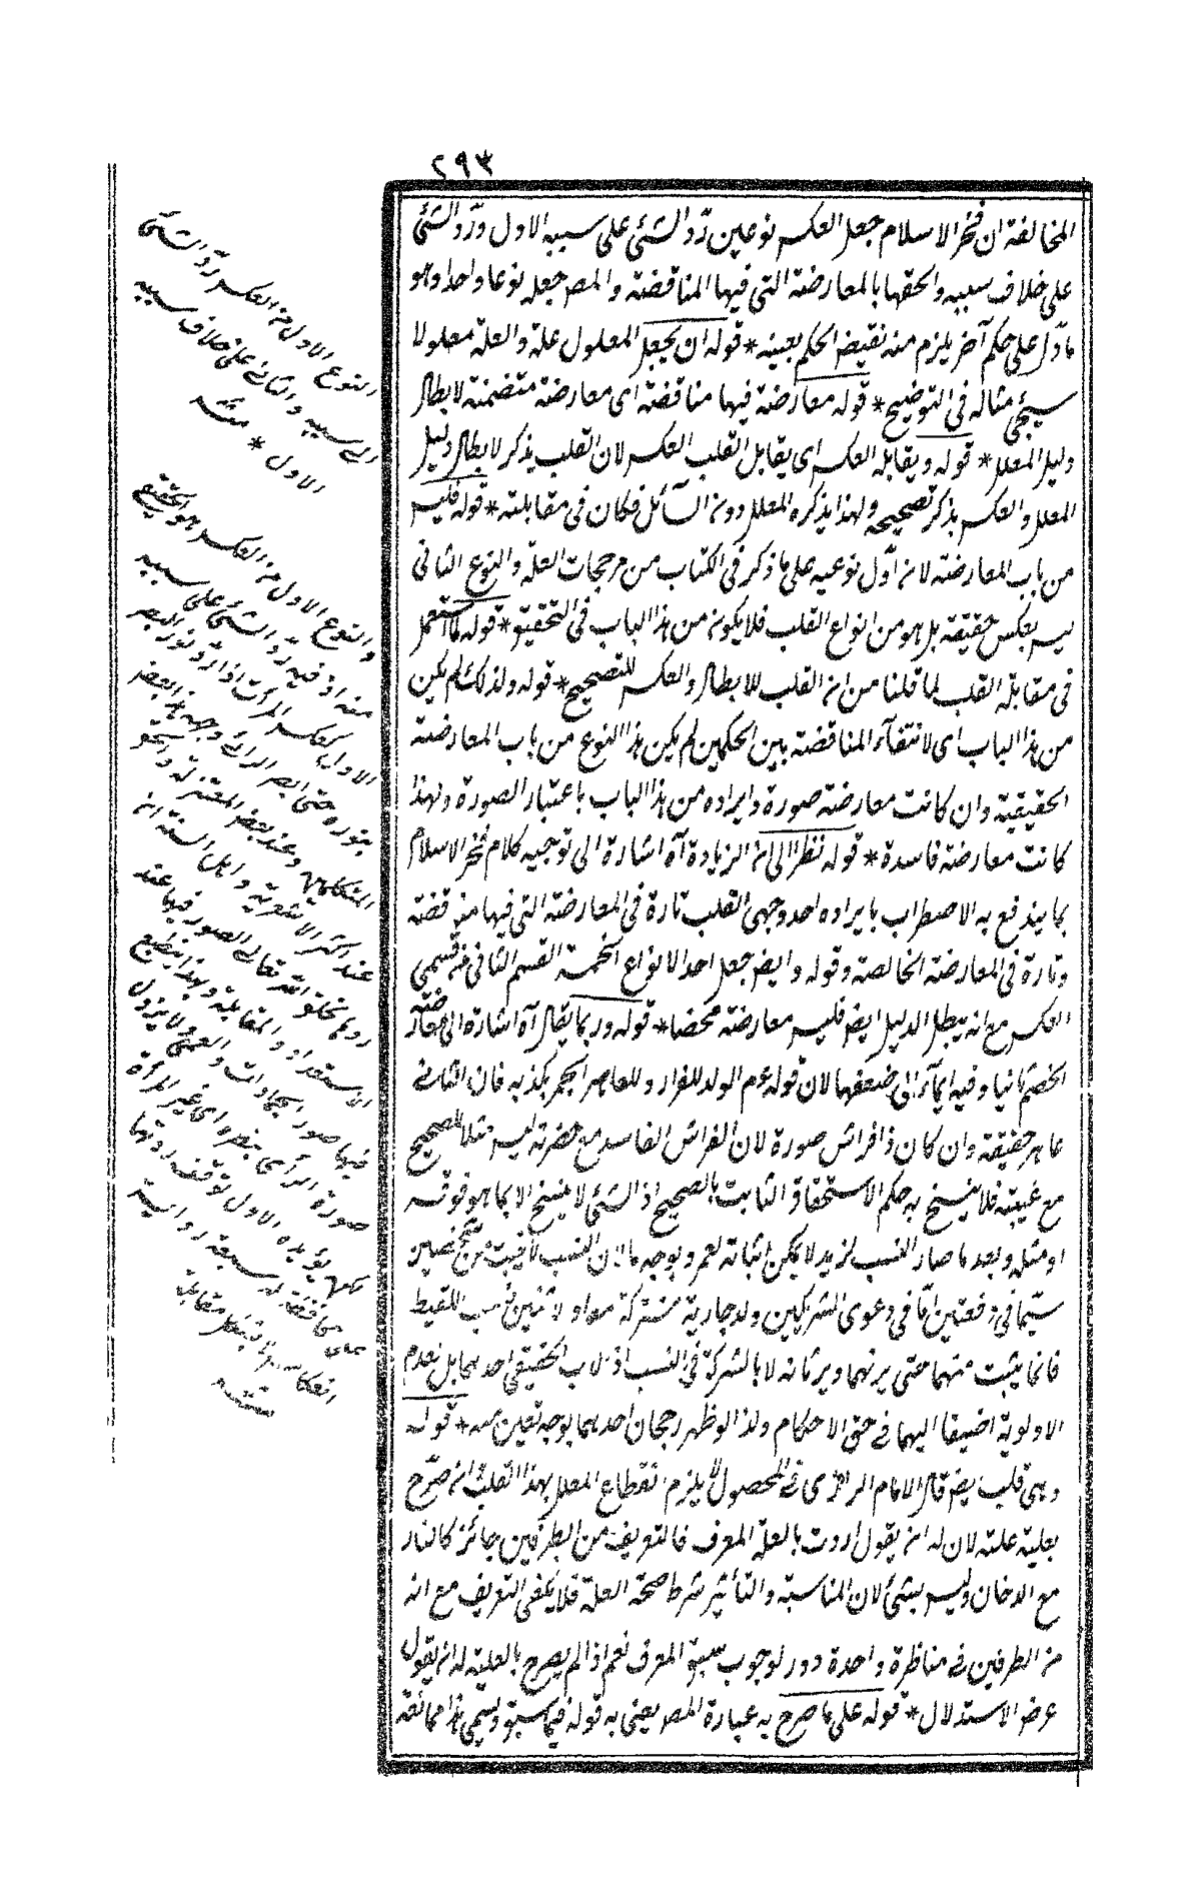 ٢٩٣
المخالفة ان فخر الاسلام جعل العكس نوعين ردّ الشئ على سببه الاول وردّ الشئ
على خلاف سببه والحقها بالمعارضة التى فيها المناقضة والمص جعله نوعا واحدا وهو
ما دّل على حكم آخر يلزم منه نقيض الحكم بعينه * قوله ان يجعل المعلول علة والعلة معلولا
سيجئ مثاله فى التوضيح * قوله معارضة فيها مناقضة اى معارضة متضمنة لابطال
دليل المعلل * قوله ويقابله العكس اى يقابل القلب العكس لان القلب يذكر لابطال دليل
المعلل والعكس يذكر تصحيحه ولهذا يذكره المعلل دون السآئل فكان فى مقابلته * قوله فليس
من باب المعارضة لان اوّل نوعيه على ما ذكر فى الكتاب من مرجحات العلة والنوع الثانى
ليس بعكس حقيقة بل هو من انواع القلب فلا يكون من هذا الباب فى التحقيق * قوله لما استعمل
فى مقابلة القلب لما قلنا من ان القلب للابطال والعكس للتصحيح * قوله ولذلك لم يكن
من هذا الباب اى لانتفآء المناقضة بين الحكمين لم يكن هذا النوع من باب المعارضة
الحقيقية وان كانت معارضة صورة وايراده من هذا الباب باعتبار الصورة ولهذا
كانت معارضة فاسدة * قوله نظرا الى ان الزيادة آه اشارة الى توجيه كلام فخر الاسلام
بما يندفع به الاضطراب بايراده احد وجهى القلب تارة فى المعارضة التى فيها مناقضة
وتارة فى المعارضة الخالصة وقوله وايض جعل احد الانواع الخمسة القسم الثانى من قسمى
العكس مع انه يبطل الدليل ايض فليس معارضة محضا * قوله وربما يقال آه اشارة الى معارضة
الخصم ثانيا وفيه ايمآء الى ضعفها لان قوله عم الولد للفراش وللعاهر الحجر يكذبه فان الثانى
عاهر حقيقة وان كان ذا فراش صورة لان الفراش الفاسد مع حضرته ليس مثلا للصحيح
مع غيبته فلا ينسخ به حكم الاستحقاق الثابت بالصحيح اذ الشئ لا ينسخ الا بما هو فوقه
او مثله وبعد ما صار النسب لزيد لا يمكن اثباته لعمرو بوجه ما لان النسب لا يثبت من شخصين
سيّما فى دفعتين امّا فى دعوى الشريكين ولد جارية مشتركة معا او لاثنين نسب اللقيط
فانما يثبت منهما حتى يرثهما ويرثانه لا بالشركة فى النسب اذ الاب الحقيقى احدهما بل لعدم
الاولوية اضيفا اليهما فى حق الاحكام ولذا لو ظهر رجحان احدهما بوجه تعين منه * قوله
وهى قلب ايض قال الامام الرازى فى المحصول لا يلزم انقطاع المعلل بهذا القلب ان صرّح
بعلية علته لان له ان يقول اردت بالعلة المعرف فالتعريف من الطرفين جائز كالنار
مع الدخان وليس بشئ لان المناسبة والتأثير شرط صحة العلة فلا يكفى التعريف مع انه
من الطرفين فى مناظرة واحدة دور لوجوب سبق المعرف نعم اذا لم يصرح بالعلية له ان يقول
غرض الاستدلال * قوله على ما صرح به عبارة المص يعنى به قوله فيما سبق ويسمى هذا ممانعة
النوع الاول من العكس ردّ الشئ
الى سببه والثانى على خلاف سببه
الاول * منه
والنوع الاول من العكس هو الحقيقى
منه اذ فيه ردّ الشئ على سببه
الاول كعكس المرآت اذا ردّ نور البصر
بنوره حتى ابصر الرائى وجهه هذا عند بعض
المتكلمين وعند بعض المعتزلة
عند اكثر الاشعرية واهل السنة ان
رؤيتها بخلق الله تعالى الصور فيها عند
الاستعداد والمقابلة ولهذا ينطبع
فيها صور الجمادات والعمى ولا يزول
صورة الرائى بنظره الى غير المرآة